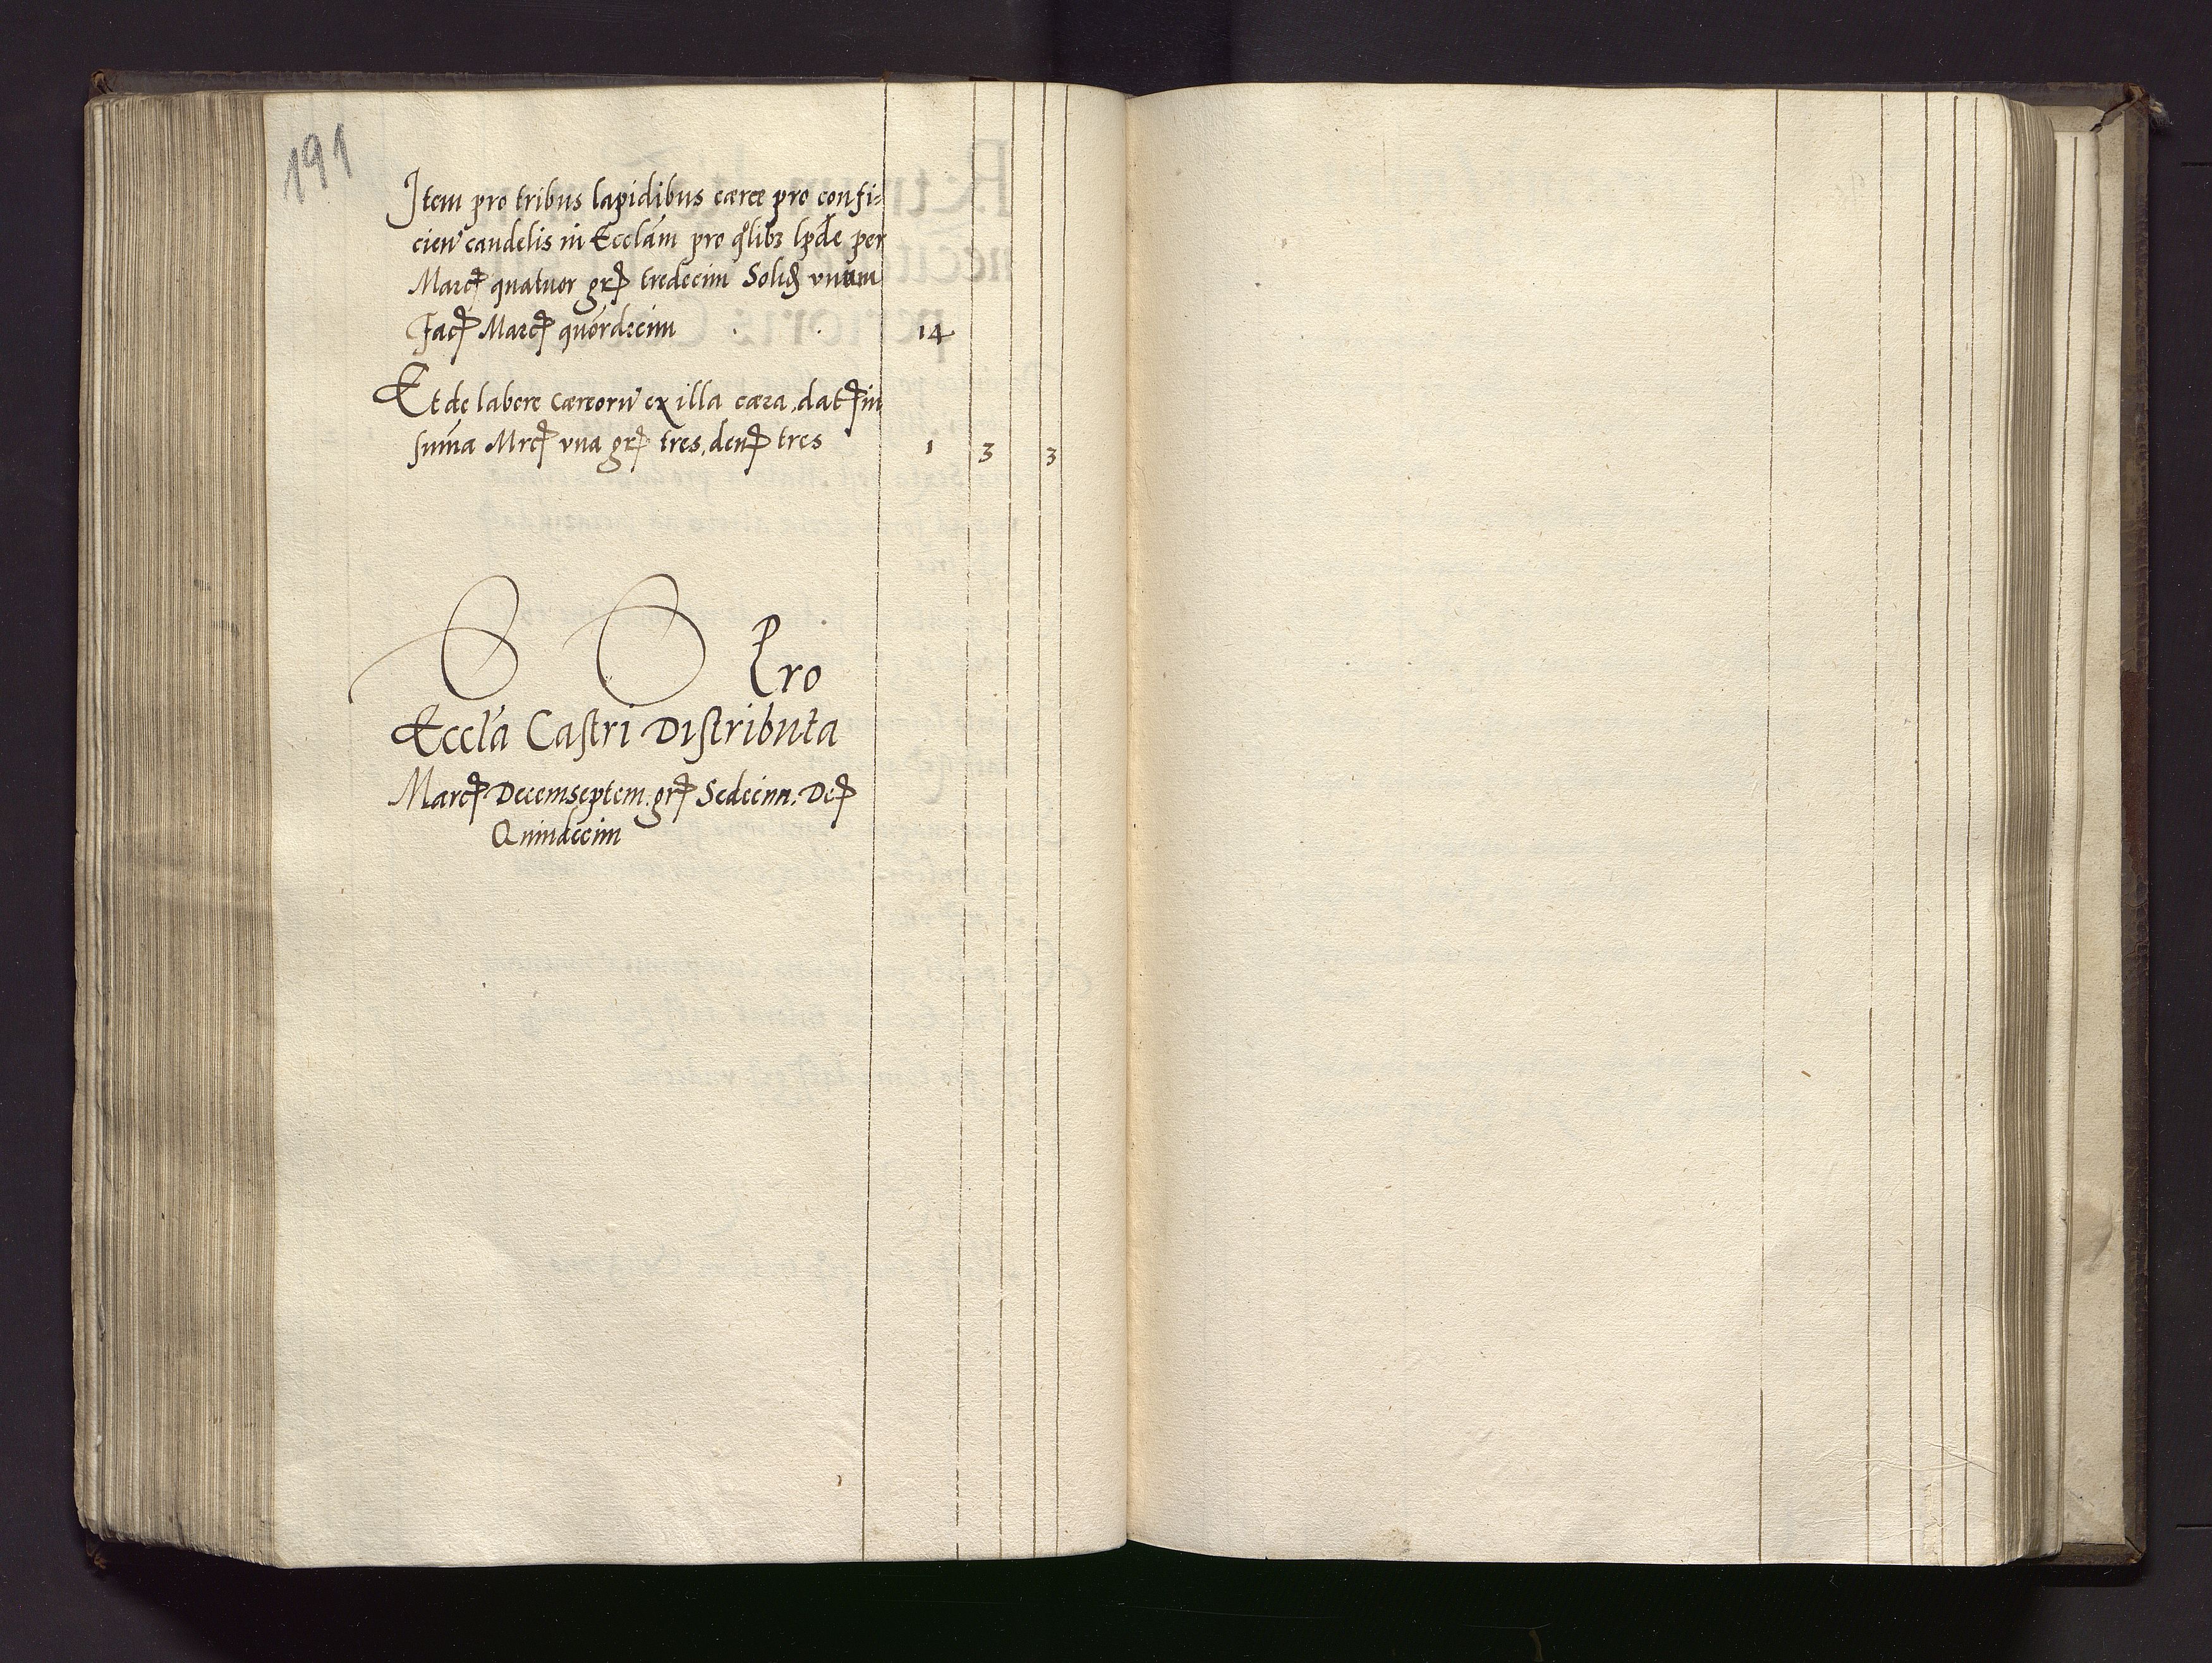 191
Item pro tribus lapidibus cæræ pro confi=
cien' candelis in Ecclām pro qlibꝫ lpde per
Marcꝭ quatuor grꝭ tredecim Solid vnum
Facꝭ Marcꝭ quōrdecim 14
Et de labore cæreorū ex illa cæra, datꝭ in
sum̄a Mrcꝭ vna grꝭ tres, denꝭ tres 1 3 3
Pro
Eccl'a Castri Distributa
Marcꝭ Decemseptem. grꝭ Sedecim. Deꝭ
Quindecim